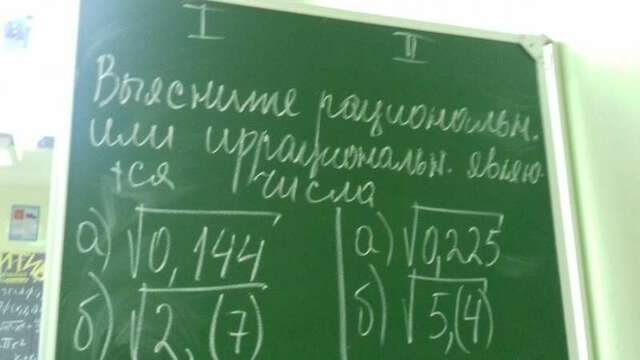 I II
Выясните рациональн.
или иррациональн. являю
тся числа
а) √0,144 а) √0,225
б) √2,(7) б) √5,(4)